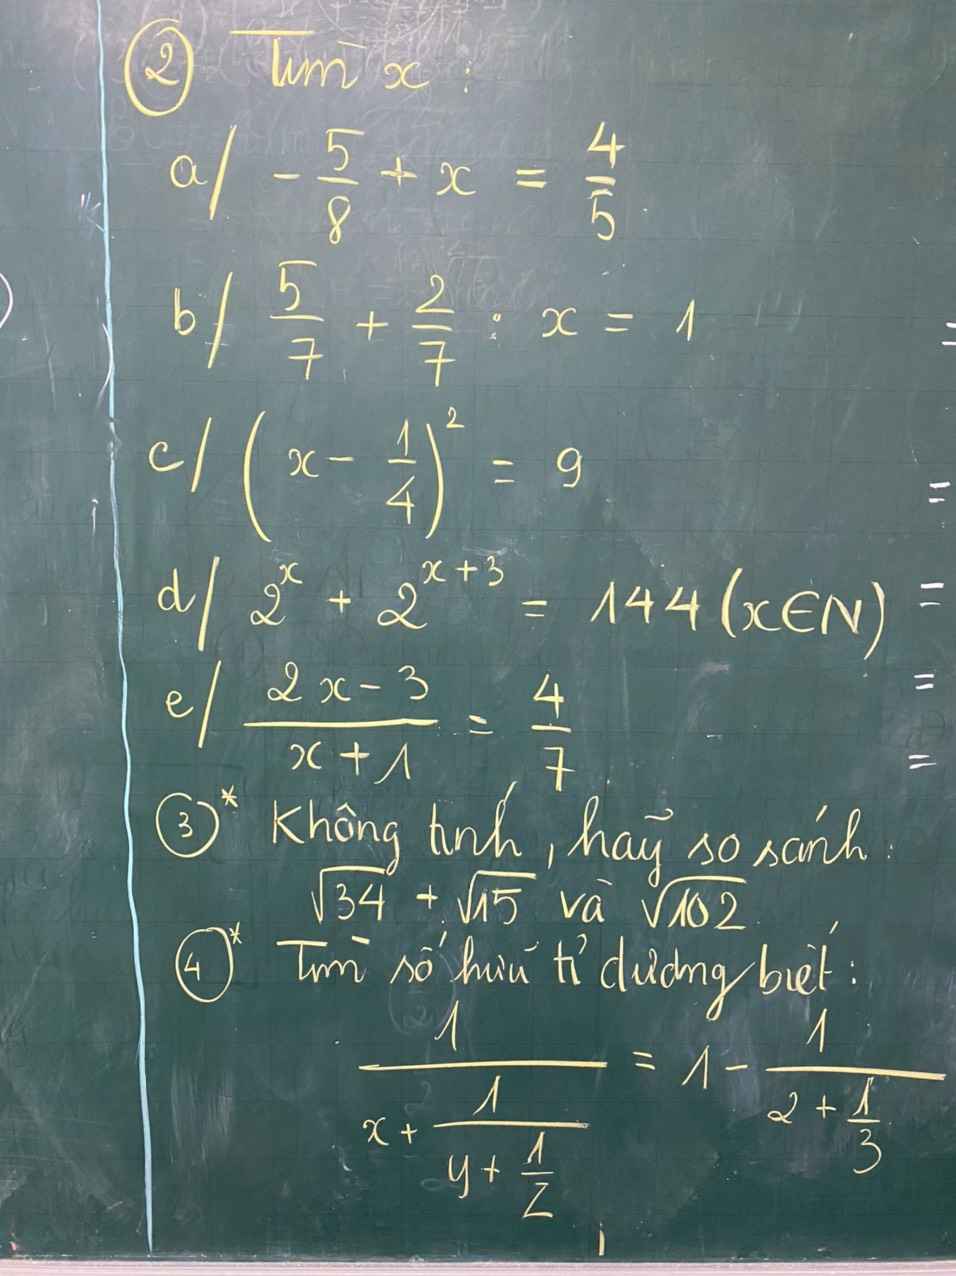 ② Tìm x :
a/ - 5/8 + x = 4/5
b/ 5/7 + 2/7 : x = 1
c/ (x - 1/4)² = 9
d/ 2^x + 2^(x+3) = 144 (x∈N)
e/ (2x - 3)/(x + 1) = 4/7
③* Không tính, hãy so sánh :
√34 + √15 và √102
④* Tìm số hữu tỉ dương biết :
1/(x + 1/(y + 1/z)) = 1 - 1/(2 + 1/3)